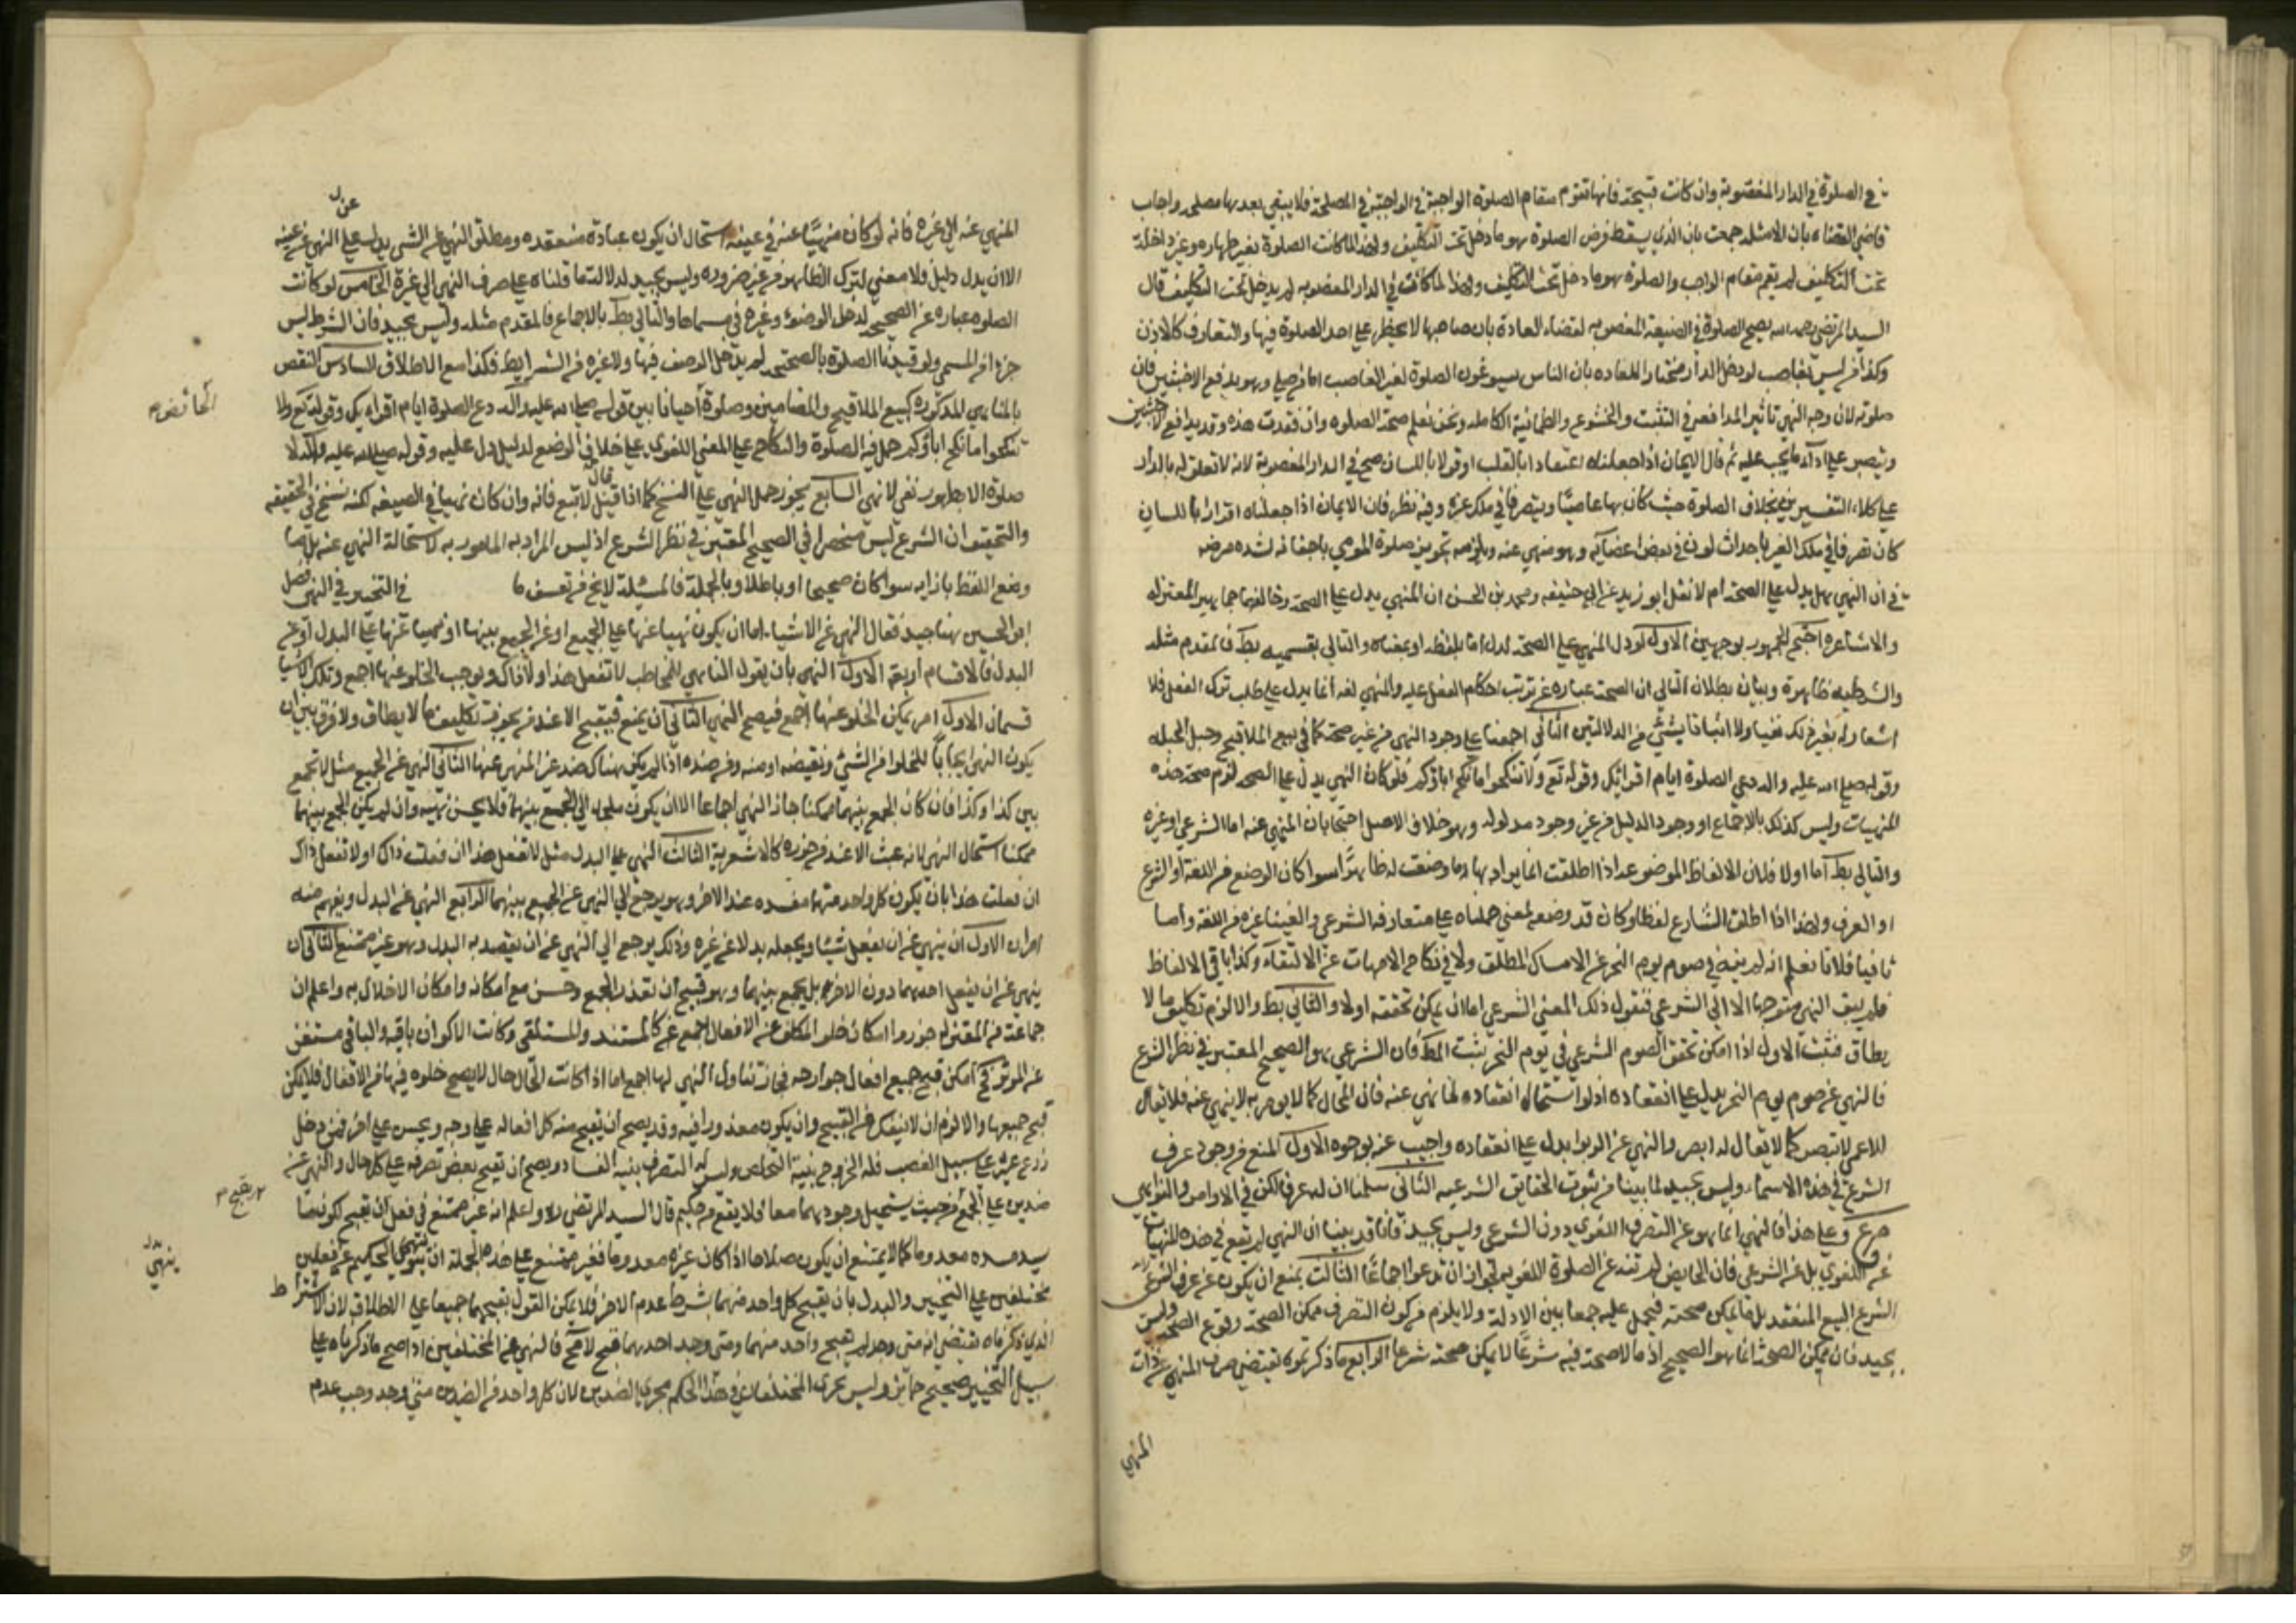 في الصلوة في الدار المغصوبة وان كانت قبيحة فانها تقوم مقام الصلوة الواجبة في المصلحة فلا يبقى بعدها مصلحة واجاب
قاضي القضاة بان الامة اجمعت بان الذي يسقط فرض الصلوة هو ما دخل تحت التكليف ولهذا لما كانت الصلوة بغير طهارة غير داخلة
تحت التكليف لم يقم مقام الواجب والصلوة هو ما دخل تحت التكليف ولهذا لما كانت في الدار المغصوبه لم يدخل تحت التكليف قال
السيد المرتضى رحمه الله يصح الصلوة في الضيعة المغصوبه لقضاء العادة بان صاحبها لا يحظر على احد الصلوة فيها والتعارف كالاذن
وكذا من ليس بغاصب لو دخل الدار مختارا للعاده بان الناس يسوغون الصلوة لغير الغاصب اما من صلى وهو يدافع الاخبثين فان
صلوته لان وجه النهي تاثير المدافعه في التثبت والخشوع والطمانية الكامله ونحن نعلم صحة الصلوه وان فقدت هذه وقد يدافع الاخبثين
ويصبر على اداء ما يجب عليه ثم قال الايمان اذا جعلناه اعتقادا بالقلب او قولا باللسان صح في الدار المغصوبة لانه لا تعلق له بالدار
على كلا التفسيرين بخلاف الصلوة حيث كان بها عاصيا ومتصرفا في ملك غيره وفيه نظر فان الايمان اذا جعلناه اقرارا باللسان
كان تصرفا في ملك الغير باحداث لون في بعض اعضائه وهو منهي عنه ويلزمه تجويز صلوة المومي باجفانه لشده مرضه
في ان النهي هل يدل على الصحة ام لا نقل ابو زيد عن ابي حنيفه ومحمد بن الحسن ان النهي يدل على الصحة وخالفهما جماهير المعتزله
والاشاعره احتج الجمهور بوجهين الاول لو دل النهي على الصحة لدل اما بلفظه او بمعناه والتالي بقسميه بط فالمقدم مثله
والشرطيه ظاهرة وبيان بطلان التالي ان الصحة عباره عن ترتب احكام الفعل عليه والنهي لغة انما يدل على طلب ترك الفعل فلا
اشعار له بغير ذلك نفيا ولا اثباتا بشيء من الدلالتين الثاني اجمعنا على وجود النهي من غير صحة كما في بيع الملاقيح وحبل الحبله
وقوله صلى الله عليه واله دعي الصلوة ايام اقرائك وقوله تع ولا تنكحوا ما نكح اباؤكم فلو كان النهي يدل على الصحه لزم صحة هذه
المنهيات وليس كذلك بالاجماع او وجود الدليل من غير وجود مدلوله وهو خلاف الاصل احتجا بان المنهي عنه اما الشرعي او غيره
والتالي بط اما اولا فلان الالفاظ الموضوعه اذا اطلقت انما يراد بها ما وضعت له ظاهرا سوا كان الوضع من اللغة او الشرع
او العرف ولهذا اذا اطلق الشارع لفظا وكان قد وضعه لمعني حملناه على متعارفه الشرعي والغينا غيره من اللغة واما
ثانيا فلانا نعلم انه لم ينه في صوم يوم النحر عن الامساك المطلق ولا في نكاح الامهات عن الالتقاء وكذا باقي الالفاظ
فلم يبق النهي متوجها الا الى الشرعي فنقول ذلك المعنى الشرعي اما ان يمكن تحققه اولا والثاني بط والا لزم تكليف ما لا
يطاق فثبت الاول اذا امكن تحقق الصوم الشرعي في يوم النحر ثبت المط فان الشرعي هو الصحيح المعتبر في نظر الشرع
فالنهي عن صوم يوم النحر يدل على انعقاده اذ لو استحال انعقاده لما نهي عنه فان المحال كما لا يومر به لا ينهى عنه فلا يقال
للاعمى لا تبصر كما لا يقال له ابصر والنهي عن الربوا يدل على انعقاده واجيب عنه بوجوه الاول المنع من وجود عرف
الشرع في هذه الاسماء وليس بجيد لما بينا من ثبوت الحقايق الشرعيه الثاني سلمنا ان له عرفا لكن في الاوامر والنواهي
وعلى هذا فالنهي انما هو عن التصرف اللغوي دون الشرعي وليس بجيد فانا قد بينا ان النهي لم يقع في هذه المنهيات
عن اللغوي بل عن الشرعي فان الحايض لم تنه عن الصلوة اللغويه لجواز ان تدعوا اجماعا الثالث يمنع ان يكون عن عرف الشرع
الشرع البيع المنعقد بل ما يمكن صحته فيحمل عليه جمعا بين الادلة ولا يلزم من كون التصرف ممكن الصحة وقوع الصحة وليس
بجيد فان ممكن الصحة انما هو الصحيح اذ ما لا صحة فيه شرعا لا يمكن صحته شرعا الرابع ما ذكرتموه يقتضي صرف النهي عن ذات
المنهي
عن ل
المنهي عنه الى غيره فانه لو كان منهيا عنه في عينه استحال ان يكون عبادة منعقده ومطلق النهي عن الشي يدل على النهي عن عينه
الا ان يدل دليل فلا معنى لترك الظاهر من غير ضروره وليس بجيد لدلالة ما قلناه على صرف النهي الى غيره الخامس لو كانت
الصلوه عباره عن الصحيح لدخل الوضوء وغيره في مسماها والتالي بط بالاجماع فالمقدم مثله وليس بجيد فان الشرط ليس
جزءا من المسمى ولو قيدنا الصلوة بالصحة لم يدخل الوصف فيها ولا غيره من الشرايط فكذا مع الاطلاق السادس النقص
بالمناهي المذكوره كبيع الملاقيح والمضامين وصلوة الحائض م
احيانا بين قوله صلى الله عليه واله دع الصلوة ايام اقرائك وقوله تع ولا
تنكحوا ما نكح اباؤكم حمل فيه الصلوة والنكاح على المعنى اللغوي على خلاف الوضع لدليل دل عليه وقوله صلى الله عليه واله لا
صلوة الا بطهور نفي لا نهي السابع يجوز حمل النهي على النسخ كما اذا قال لا تبع فانه وان كان نهيا في الصيغه لكنه نسخ في الحقيقه
والتحقيق ان الشرع ليس منحصرا في الصحيح المعتبر في نظر الشرع اذ ليس المراد به المامور به لاستحالة النهي عنه بل ما
وضع اللفظ بازايه سوا كان صحيحا او باطلا وبالجملة فالمسئلة لا يخ من تعسف ما في التخيير في النهي فصل
ابو الحسين هنا جيد فقال النهي عن الاشياء اما ان يكون نهيا عنها على الجميع او عن الجمع بينها او نهيا عنها على البدل او عن
البدل فالاقسام اربعة الاول النهي بان يقول الناهي للمخاطب لا تفعل هذا ولا ذاك ويوجب الخلو عنها اجمع وتلك الاشيا
قسمان الاول ان يمكن الخلو عنها اجمع فيصح النهي الثاني ان يمنع فيقبح الا عند من يجوز تكليف ما لا يطاق ولا فرق بين ان
يكون النهي ايجابا للخلو من الشيء ونقيضه او منه ومن ضده اذا لم يكن هناك ضد غير المنهي عنها الثاني النهي عن الجميع مثل لا تجمع
بين كذا وكذا فان كان الجمع بينهما ممكنا جاز النهي اجماعا الا ان يكون ملجا الى الجمع بينهما فلا يحسن نهيه وان لم يكن الجمع بينهما
ممكنا استحال النهي لانه عبث الا عند من جوزه كالاشعرية الثالث النهي على البدل مثل لا تفعل هذا ان فعلت ذاك او لا تفعل ذاك
ان فعلت هذا بان يكون كل واحد منهما مفسده عند الاخر وهو يرجع الى النهي عن الجمع بينهما الرابع النهي عن البدل ويفهم منه
امران الاول ان ينهي عن ان يفعل شيئا ويجعله بدلا عن غيره وذلك يرجع الى النهي عن ان يقصد به البدل وهو غير ممتنع الثاني ان
ينهي عن ان يفعل احدهما دون الاخر بل يجمع بينهما وهو قبيح ان تعذر الجمع وحسن مع امكانه وامكان الاخلال به واعلم ان
جماعة من المعتزله جوزوا امكان خلو المكلف عن الافعال اجمع كالمستند والمستلقي وكانت الاكوان باقيه والباقي مستغن
عن الموثر فح امكن قبح جميع افعال جوارحه فجاز تناول النهي لها اجمع اما اذا كانت الحال حال لا يصح خلوه فيها من الافعال فلا يمكن
قبح جميعها والا لزم ان لا ينفك من القبيح وان يكون معذورا فيه وقد يصح ان يقبح منه كل افعاله على وجه ويحسن على اخر فمن دخل
زرع غيره على سبيل الغصب فله الخروج بنية التخلص وليس له التصرف بنيه الفساد ويصح ان يقبح بعض تصرفه على كل حال والنهي عن
ضدين على الجمع من حيث يستحيل وجودهما معا فلا يقع من حكيم قال السيد المرتضى ره واعلم انه غير ممتنع في فعل ان يقبح لكون ما
يقبح م
يسد مسده معدوما كما لا يمتنع ان يكون صلاحا اذا كان غيره معدوما فغير ممتنع على هذه الجملة ان ينهى الحكيم عن فعلين
ينهي بدل
مختلفين على التخيير والبدل بان يقبح كل واحد منهما بشرط عدم الاخر فلا يمكن القول بقبحهما جميعا على الاطلاق لان الاشتراط
الذي ذكرناه يقتضي انه متى وجد لم يقبح واحد منهما ومتى وجد احدهما قبح لا مح فالنهي عن المختلفين اذا صح ما ذكرناه على
سبيل التخيير صحيح جايز وليس يجري المختلفان في هذا الحكم مجرى الضدين لان كل واحد من الضدين متى وجد وجب عدم